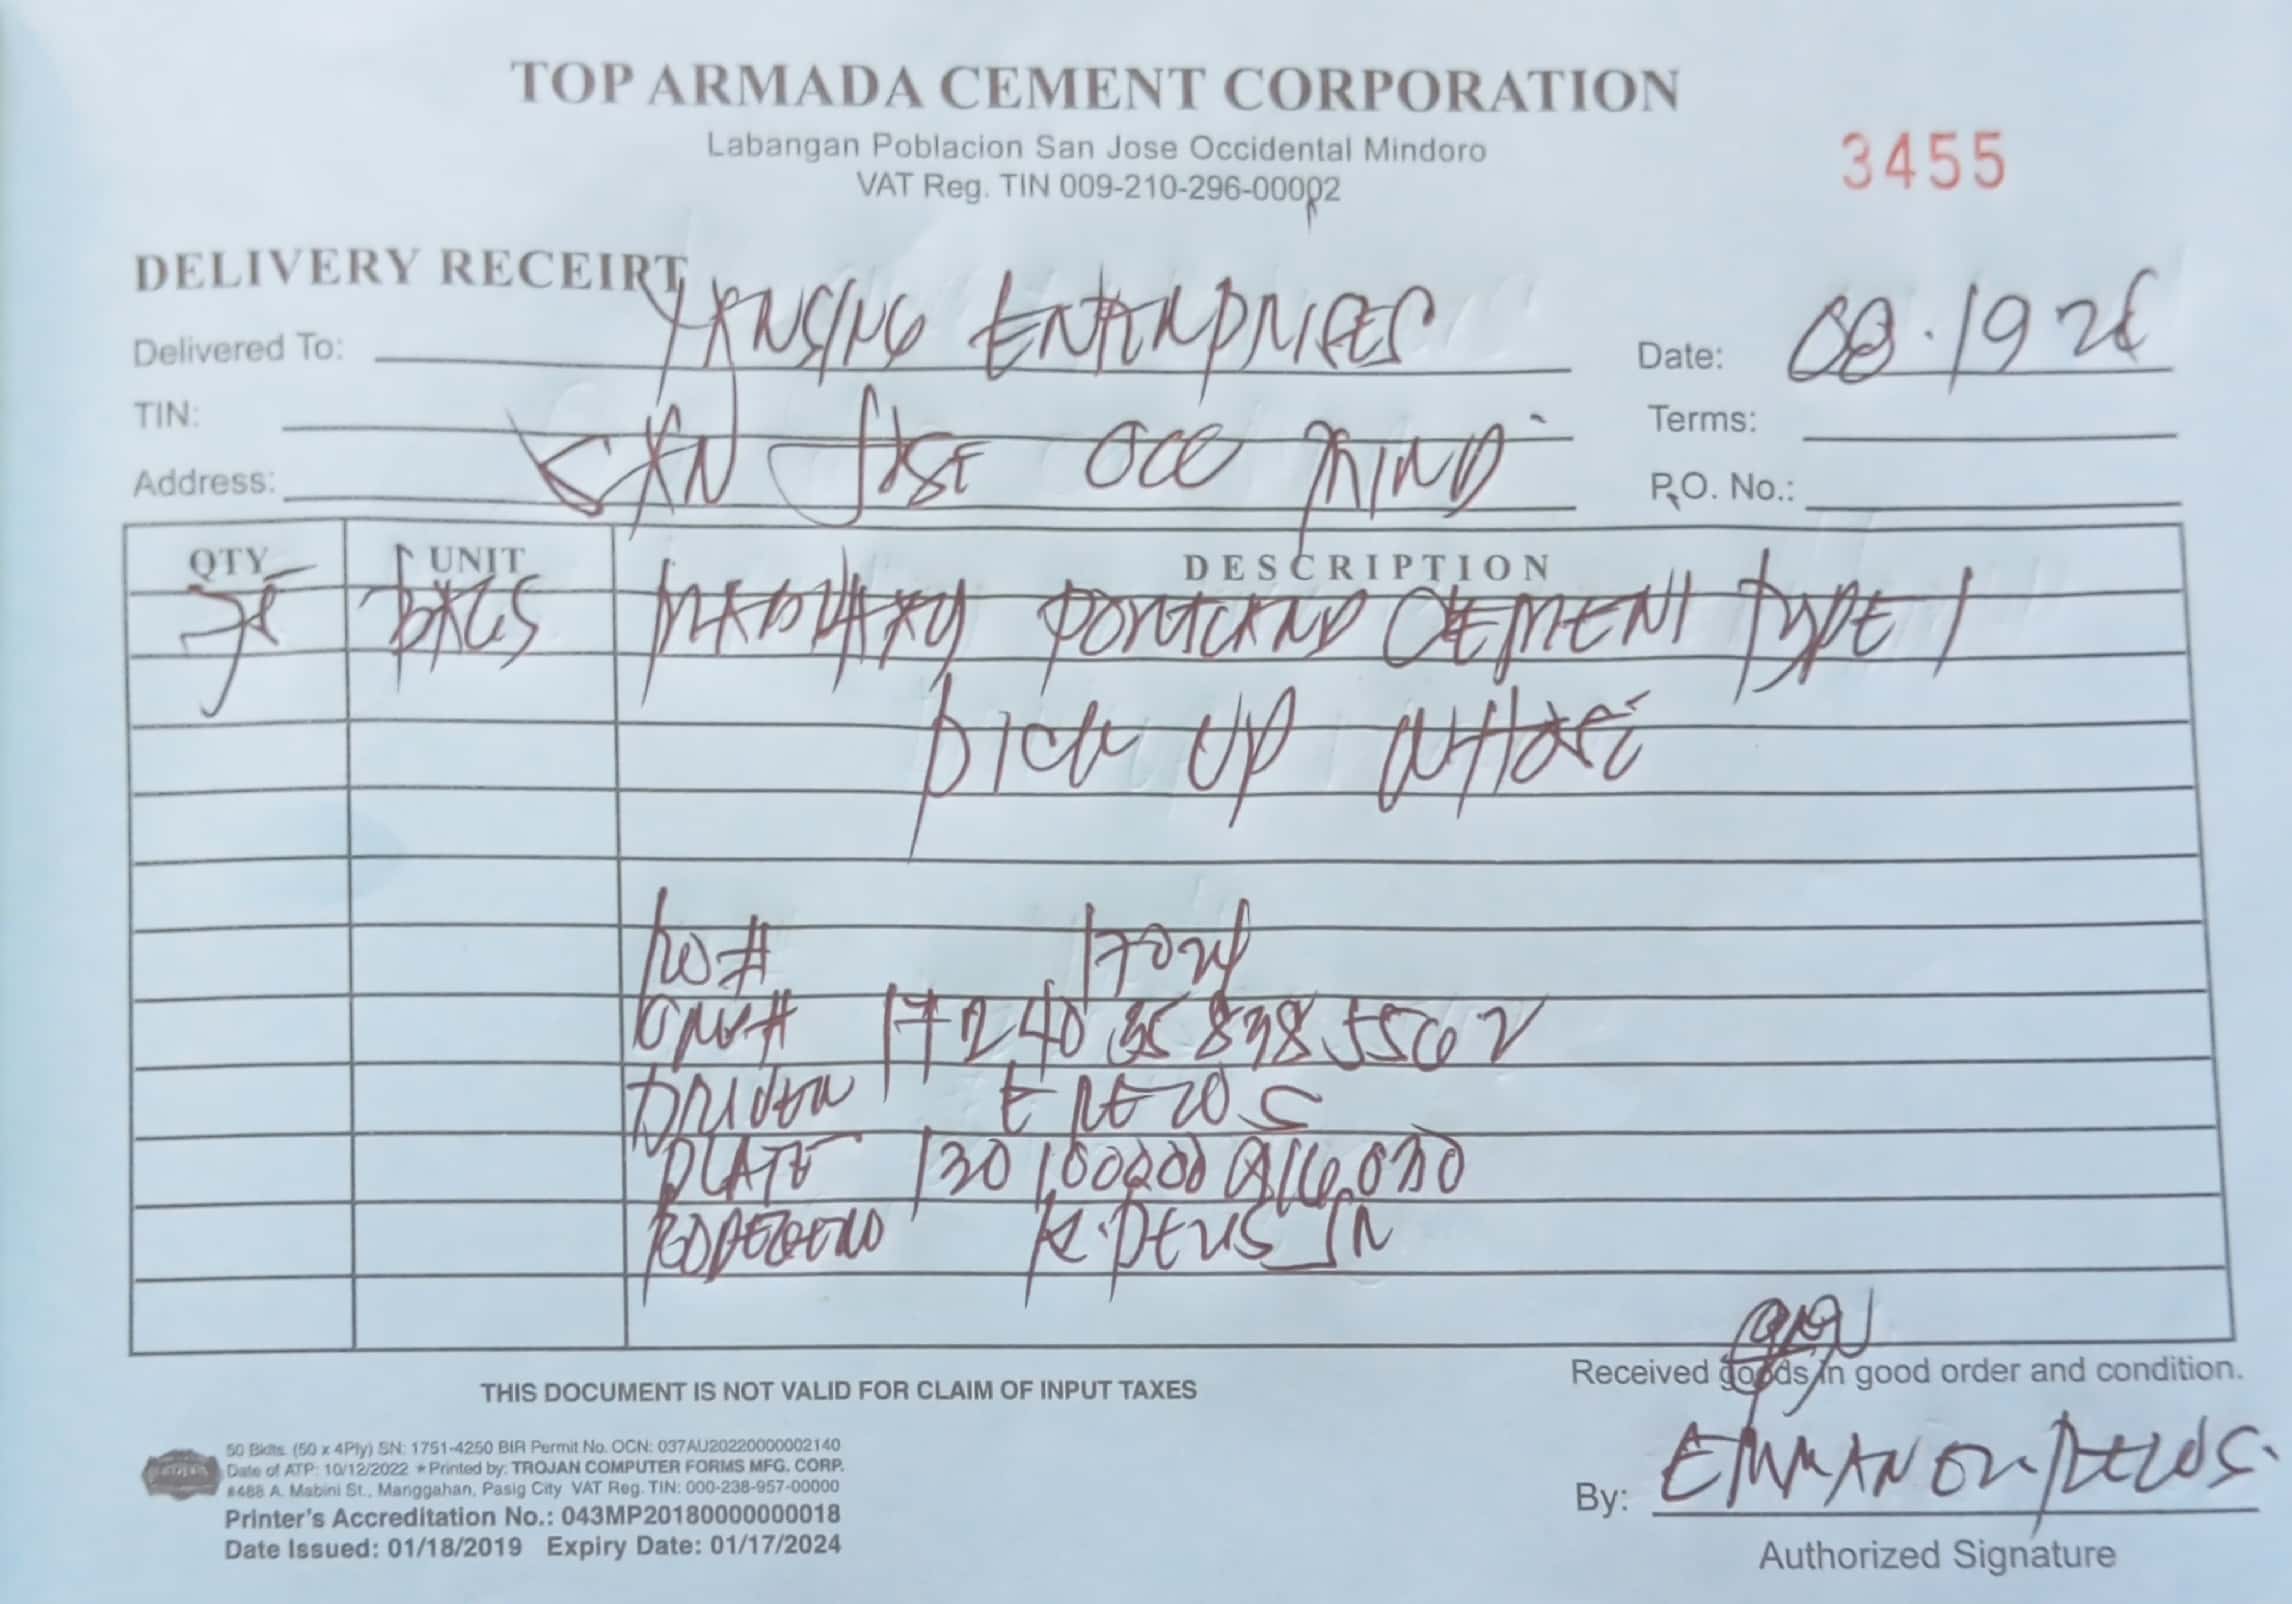 TOP ARMADA CEMENT CORPORATION
Labangan Poblacion San Jose Occidental Mindoro
VAT Reg. TIN 009-210-296-00002
3455
DELIVERY RECEIPT
Delivered To: YANSING ENTERPRISES Date: 08.19 26
TIN: Terms:
Address: SAN JOSE OCC MIND P.O. No.:
QTY UNIT DESCRIPTION
75 BAGS PORTLAND CEMENT TYPE 1
PICK UP
17024
DRIVER
PLATE
K. DEUS JR
Received goods in good order and condition.
By:
Authorized Signature
THIS DOCUMENT IS NOT VALID FOR CLAIM OF INPUT TAXES
50 Bklts. (50 x 4Ply) SN: 1751-4250 BIR Permit No. OCN: 037AU20220000002140
Date of ATP: 10/12/2022 * Printed by: TROJAN COMPUTER FORMS MFG. CORP.
#488 A. Mabini St., Manggahan, Pasig City VAT Reg. TIN: 000-238-957-00000
Printer's Accreditation No.: 043MP20180000000018
Date Issued: 01/18/2019 Expiry Date: 01/17/2024